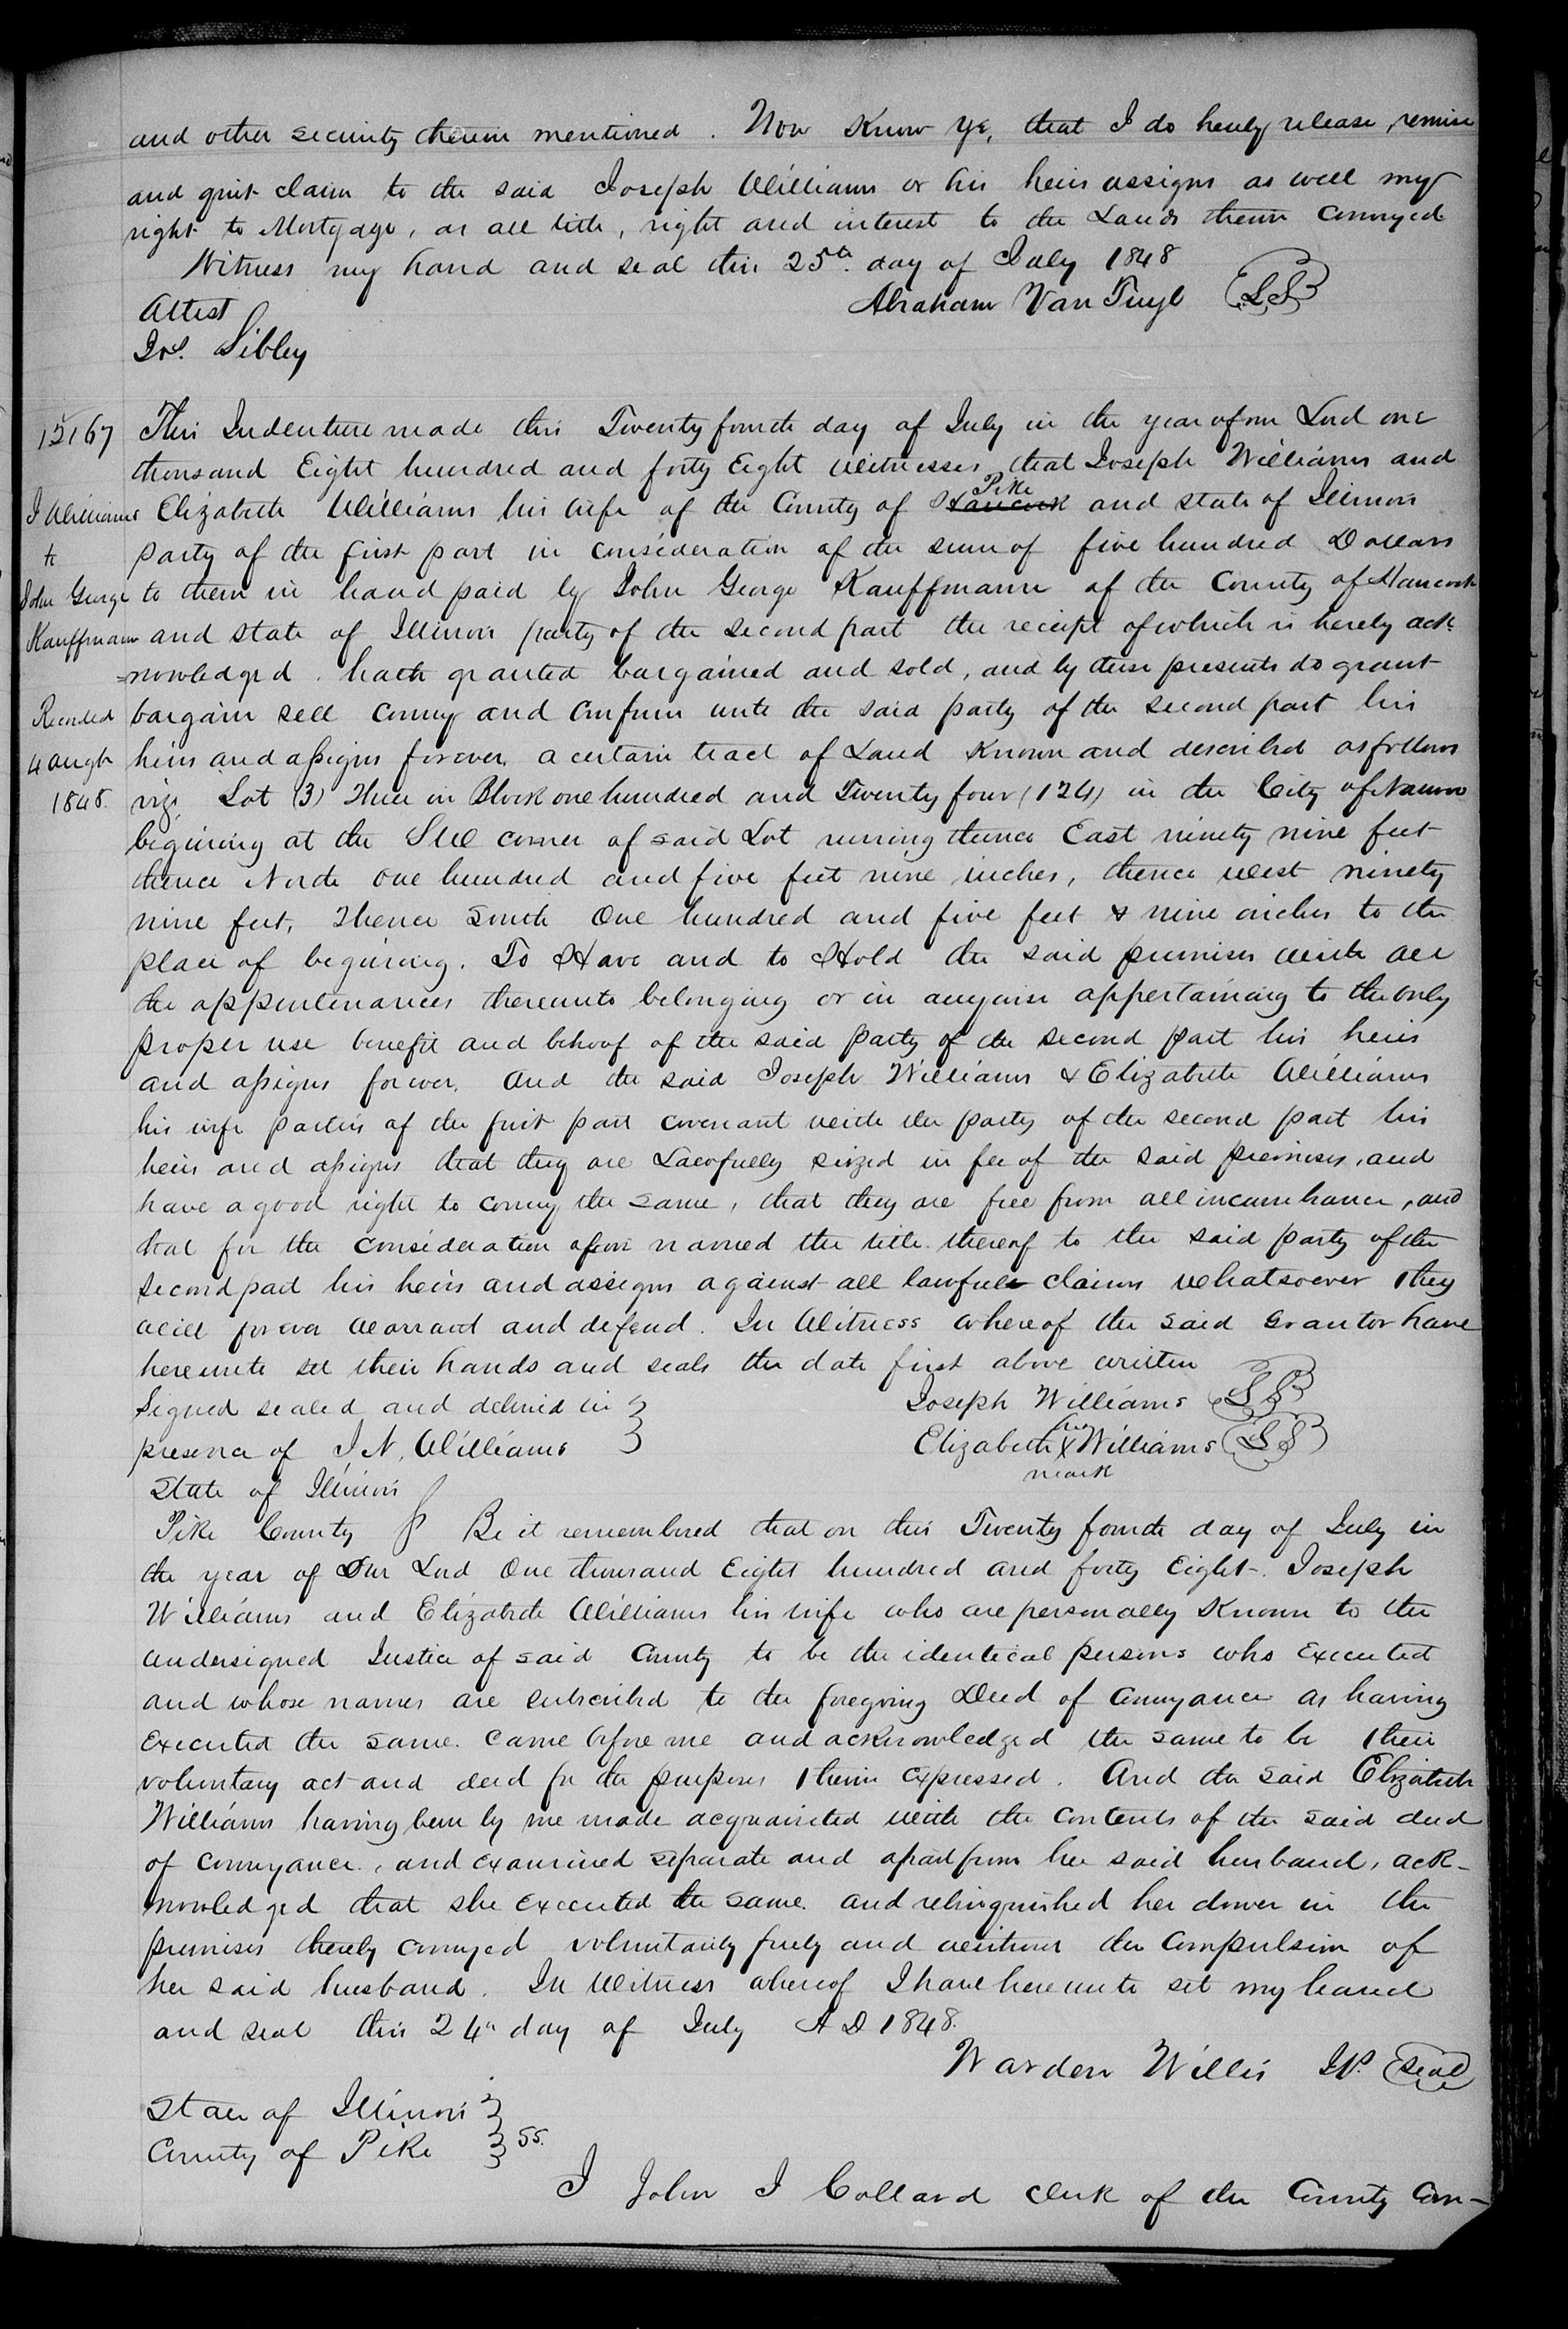 and other security therein mentioned . Now Know ye, that I do hereby release, remise
and quit claim to the said Joseph Williams or his heirs assigns as well my
right to Mortgage, as all title, right and interest to the Lands therein Conveyed
Witness my hand and seal this 25th. day of July 1848
Abraham Van Tuyl LS
Attest
Jos. Sibley
15167
This Indenture made this Twenty fourth day of July in the year of our Lord one
thousand Eight hundred and forty Eight Witnesses, that Joseph Williams and
J Williams
to
John George
Kauffmann
Recorded
4 Augt
1848.
Elizabeth Williams his wife of the County of Hancock Pike and state of Illinois
party of the first part in consideration of the sum of five hundred Dollars
to them in hand paid by John George Kauffmann of the County of Hancock
and state of Illinois party of the second part the receipt of which is hereby ack
=nowledged . hath granted bargained and sold, and by these presents do grant
bargain sell convey and confirm unto the said party of the second part his
heirs and assigns forever, a certain tract of Land Known and described as follows
viz, Lot (3) Three in Block one hundred and Twenty four (124) in the City of Nauvoo
begining at the SW corner of said Lot runing thence East ninety nine feet
thence North one hundred and five feet nine inches, thence west ninety
nine feet, Thence South One hundred and five feet & nine inches to the
place of begining. To Have and to Hold the said premises with all
the appurtenances thereunto belonging or in anywise appertaining to the only
proper use benefit and behoof of the said party of the second part his heirs
and assigns forever. And the said Joseph Williams & Elizabeth Williams
his wife parties of the first part covenant with the party of the second part his
heirs and assigns that they are Lawfully siezed in fee of the said premises, and
have a good right to convey the same, that they are free from all incumbrance, and
that for the consideration afore named the title thereof to the said party of the
second part his heirs and assigns against all lawful claims whatsoever they
will forever Warrant and defend. In Witness whereof the said Grantor have
hereunto set their hands and seals the date first above written
Signed sealed and delivered in
Joseph Williams LS
presence of J. N. Williams
Elizabeth her X mark Williams LS
State of Illinois
Pike County Be it remembered that on this Twenty fourth day of July in
the year of Our Lord One thousand Eight hundred and forty Eight. Joseph
Williams and Elizabeth Williams his wife who are personally Known to the
undersigned Justice of said County to be the identical persons who Executed
and whose names are subscribed to the foregoing Deed of Conveyance as having
Executed the same. came before me and acknowledged the same to be their
voluntary act and deed for the purposes therein Expressed. And the said Elizabeth
Williams having been by me made acquainted with the contents of the said deed
of conveyance, and examined separate and apart from her said husband, ack-
nowledged that she Executed the same. and relinquished her dower in the
premises thereby conveyed voluntarily freely and without the Compulsion of
her said husband. In Witness whereof I have hereunto set my hand
and seal this 24th day of July A D 1848.
Warden Willis J.P. Seal
State of Illinois
County of Pike ss.
I John J Collard Clerk of the County Com-